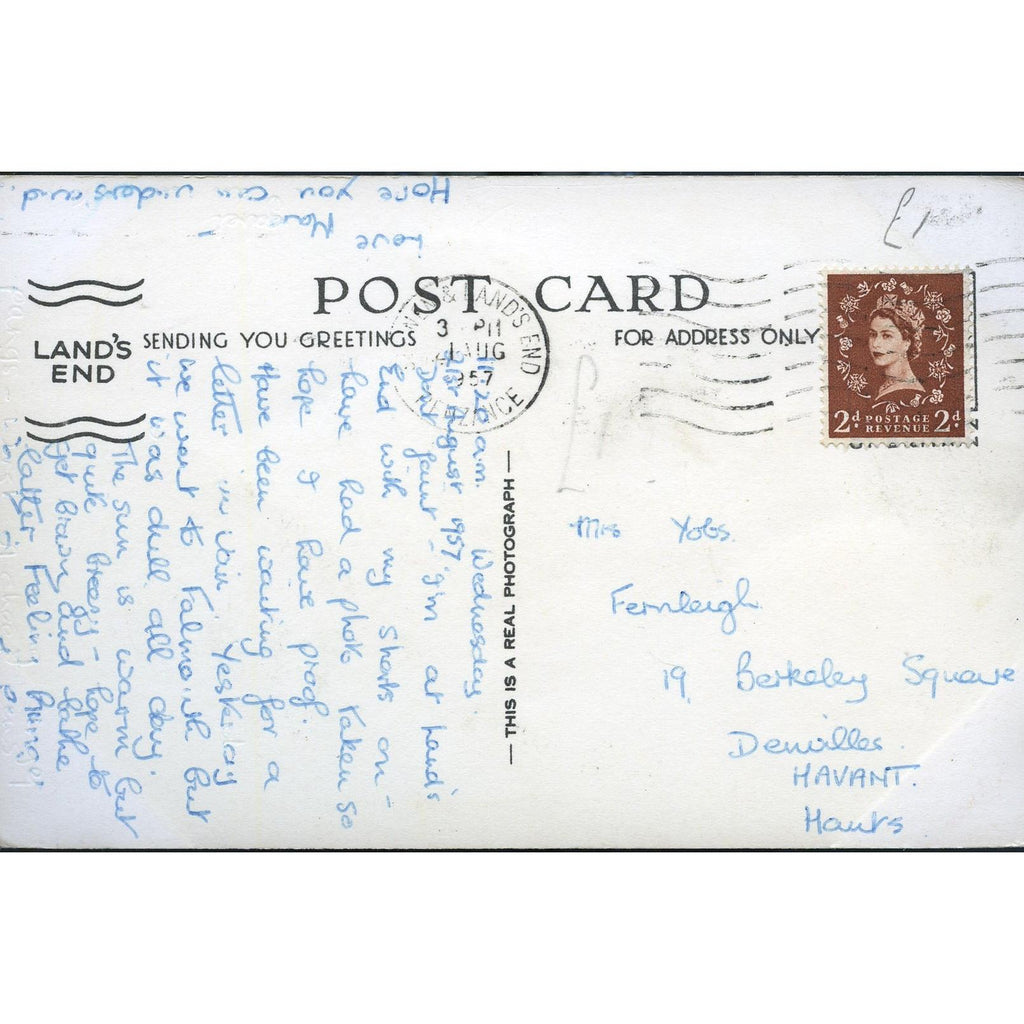 POST CARD
LAND'S
END
SENDING YOU GREETINGS
FOR ADDRESS ONLY
THIS IS A REAL PHOTOGRAPH
& LAND'S END
3 PM
AUG
1957
PENZANCE
2d POSTAGE 2d
REVENUE
£
11.20 am. Wednesday
21st August 1957
Dear I'm at Land's
End with my shorts on –
have had a photo taken so
hope I have proof.
Have been waiting for a
letter in vain. Yesterday
we went to Falmouth but
it was dull all day.
The sun is warm but
quite breezy – hope to
get brown and bathe
later. Feeling hungry
Love
Hope you can understand.
Mrs Yobs.
Fernleigh
19, Berkeley Square
Denvilles.
HAVANT.
Hants